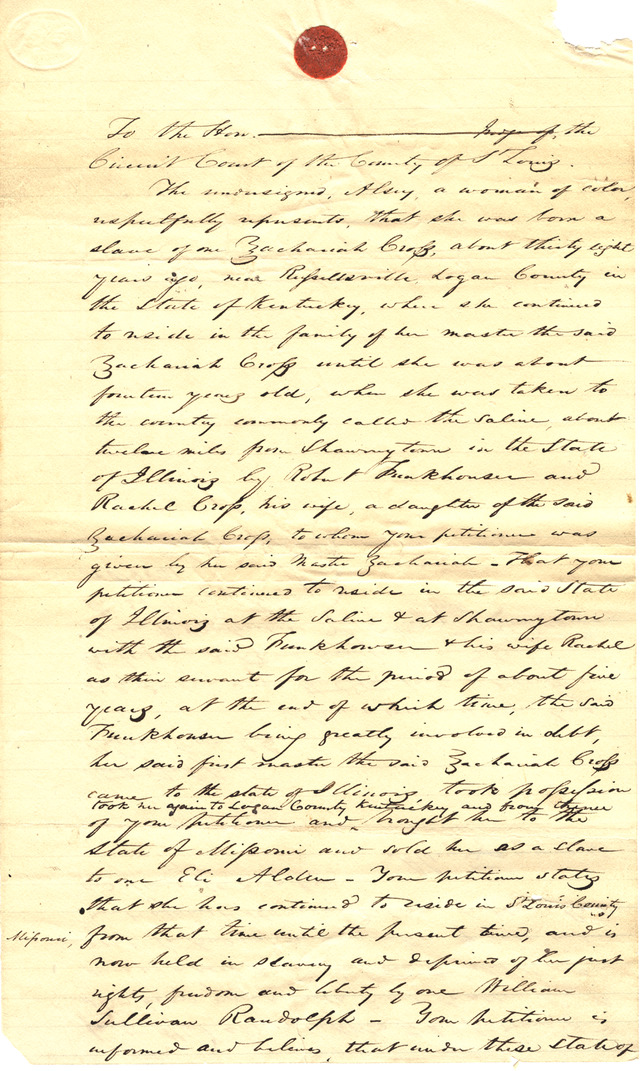 To the Hon. Judge of, the
Circuit Court of the County of St Louis.
The undersigned, Alsey, a woman of color,
respectfully represents, that she was born a
slave of one Zachariah Cross, about thirty eight
years ago, near Russellsville, Logan County in
the State of Kentucky, where she continued
to reside in the family of her master the said
Zachariah Cross until she was about
fourteen years old, when she was taken to
the country commonly called the Saline, about
twelve miles from Shawnytown in the State
of Illinois by Robert Funkhouser and
Rachel Cross, his wife, a daughter of the said
Zachariah Cross, to whom your petitioner was
given by her said Master Zachariah - That your
petitioner continued to reside in the said State
of Illinois at the Saline & at Shawnytown
with the said Funkhowser & his wife Rachel
as their servant for the period of about five
years, at the end of which time, the said
Funkhouser being greatly involved in debt,
her said first master the said Zachariah Cross
came to the state of Illinois took possession
took her again to Logan County Kentuckey and from thence
of your petitioner and brought her to the
State of Missouri and sold her as a slave
to one Eli Alden - Your petitioner states
that she has continued to reside in St Louis County
Missouri, from that time until the present time, and is
now held in slavery and deprived of her just
rights, freedom and liberty by one William
Sullivan Randolph - Your petitioner is
informed and believes, that under these state of